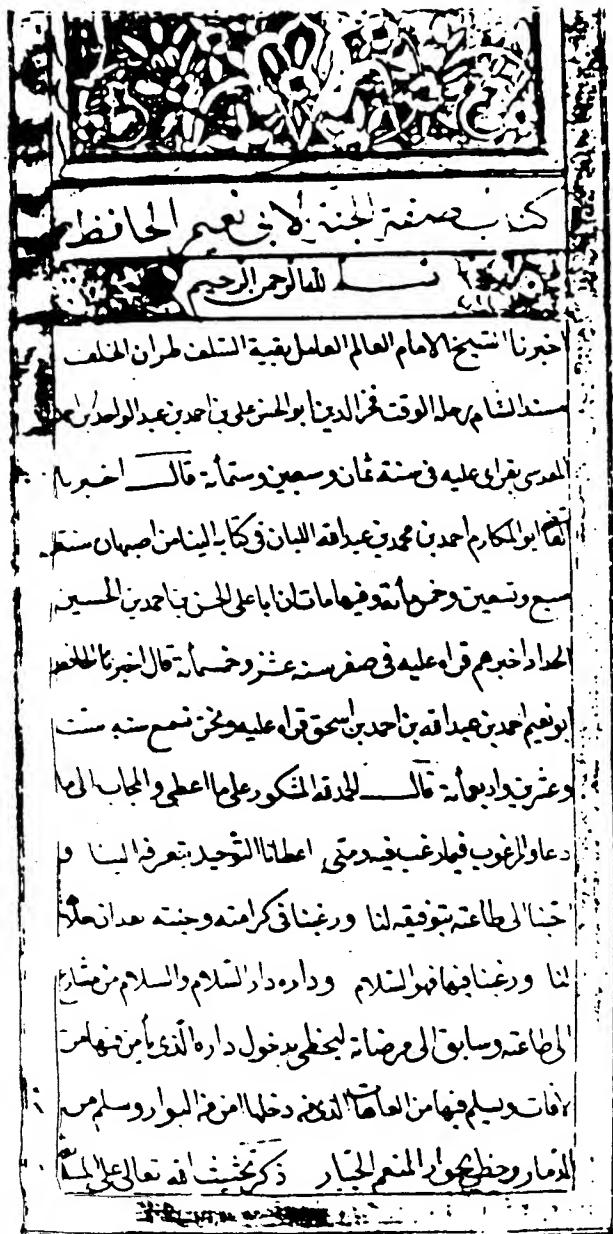 كتاب صفة الجنة لابي نعيم الحافظ
بسم الله الرحمن الرحيم
اخبرنا الشيخ الامام العالم العامل بقية السلف طران الخلف
مسند الشام رحلة الوقت فخر الدين ابو الحسن علي بن احمد بن عبد الواحد بن احمد
المقدسي بقراءتي عليه في سنة ثمان وسبعين وستمأة قال اخبرنا
ابو المكارم احمد بن محمد بن عبد الله اللبان في كتابه الينا من اصبهان سنة
سبع وتسعين وخمسمأة وفيها مات ان ابا علي الحسن بن احمد بن الحسين
الحداد اخبرهم قراءة عليه في صفر سنة عشر وخمسمأة قال اخبرنا الحافظ
ابو نعيم احمد بن عبد الله بن احمد بن اسحق قراءة عليه ونحن نسمع سنة ست
وعشرين واربعمأة قال الحمد لله المشكور على ما اعطى والمجاب الى ما
دعا والمرغوب فيما رغب فيه ومتى اعطانا التوحيد بتعرفه الينا و
اجبنا الى طاعته بتوفيقه لنا ورغبنا في كرامته وجنته بعد ان
لنا ورغبنا فيها فهو السلام وداره دار السلام والسلام من
الى طاعته وسابق الى مرضاته ليحظى بدخول داره الذي يأمن فيها من
لافات ويسلم فيها من العاهات الذي دخلها امن البوار وسلم من
الدمار وحظي بجوار المنعم الجبار ذكر الله تعالى على